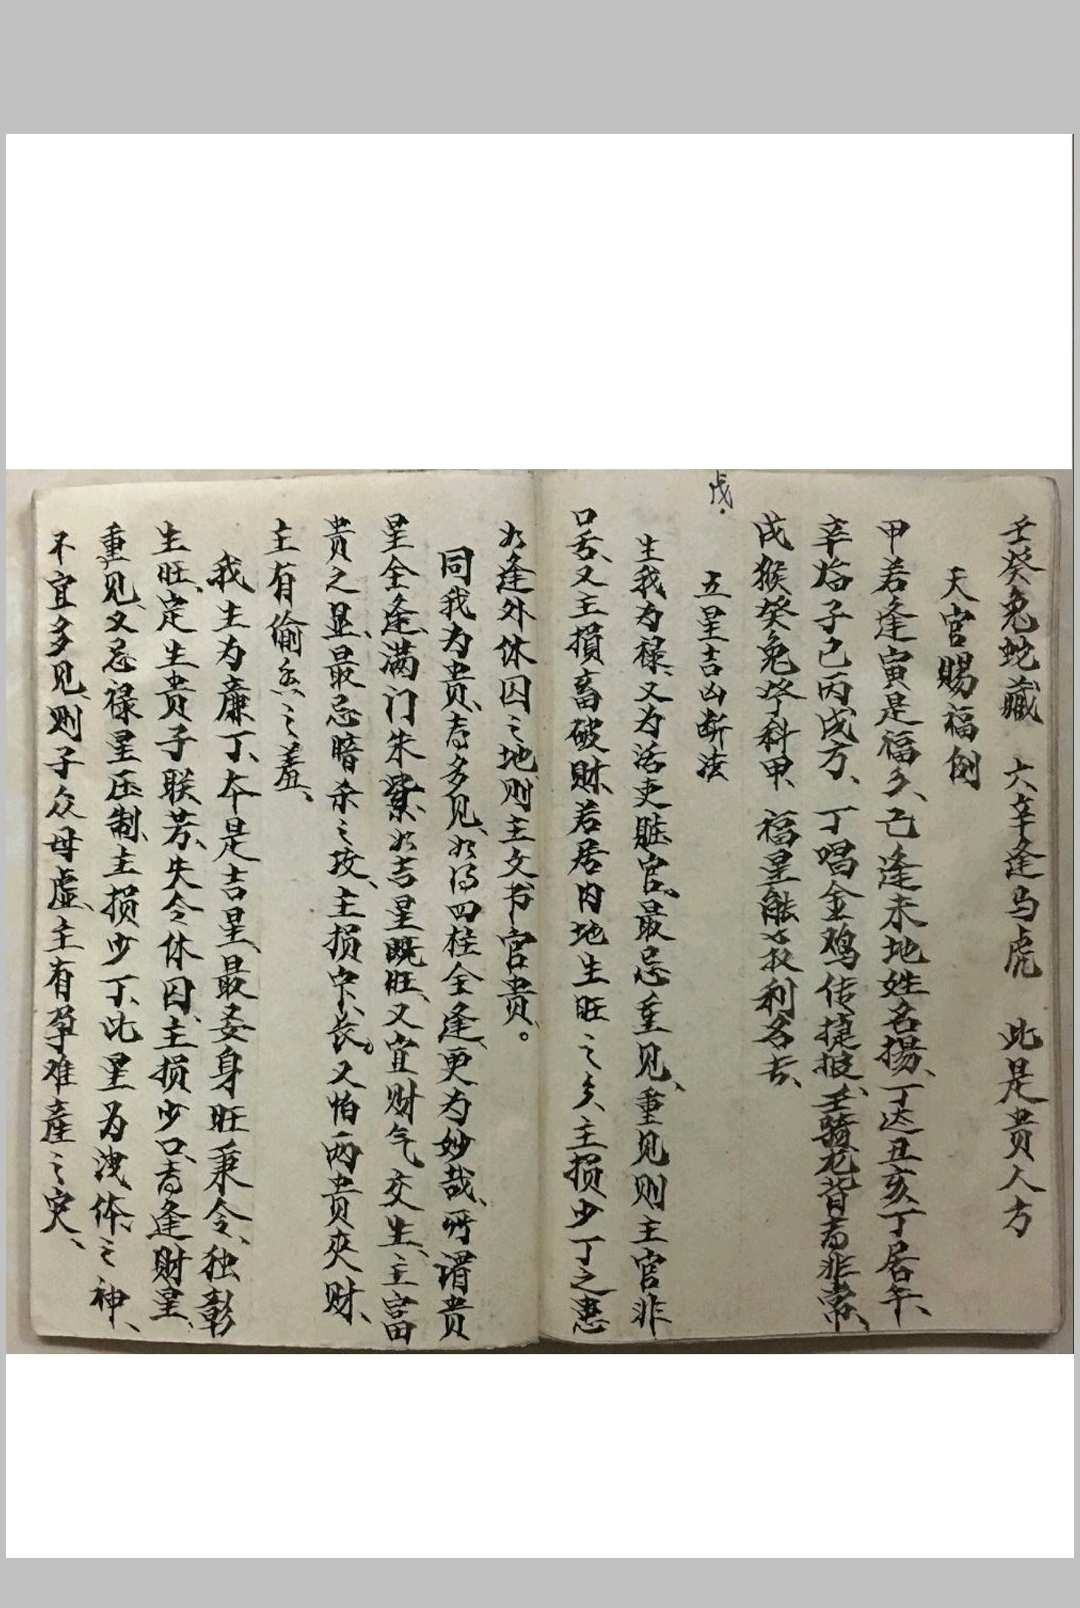 壬癸兔蛇藏 六辛逢马虎 此是贵人方
天官赐福例
甲若逢寅是福乡、乙逢未地姓名揚、丁迟丑亥丁居午、
辛临子已丙戌方、丁唱金鸡传捷报、壬骑龙背喜非常、
戊
戌猴癸兔登科甲、福星能令利名长、
五星吉凶断法
生我为禄、又为活吏脏官、最忌重见、重见则主官非
口舌、又主損畜破财、若居内地生旺之乡、主损少丁之患
如逢外休囚之地、则主文书官贵。
同我为贵、喜多见、如得四柱全逢、更为妙哉、所谓贵
星全逢、满门朱紫、如吉星既旺、又宜财气交生、主富
贵之显、最忌暗杀之攻、主损中、长、又怕两贵夾财、
主有偷香之羞、
我生为廉丁、本是吉星、最要身旺秉令、独彰
生旺、定生贵子联芳、失令休囚、主损少口、喜逢财星、
重见、又忌禄星压制、主损少丁、此星为洩体之神、
不宜多见、则子众母虚、主有孕难產之灾、